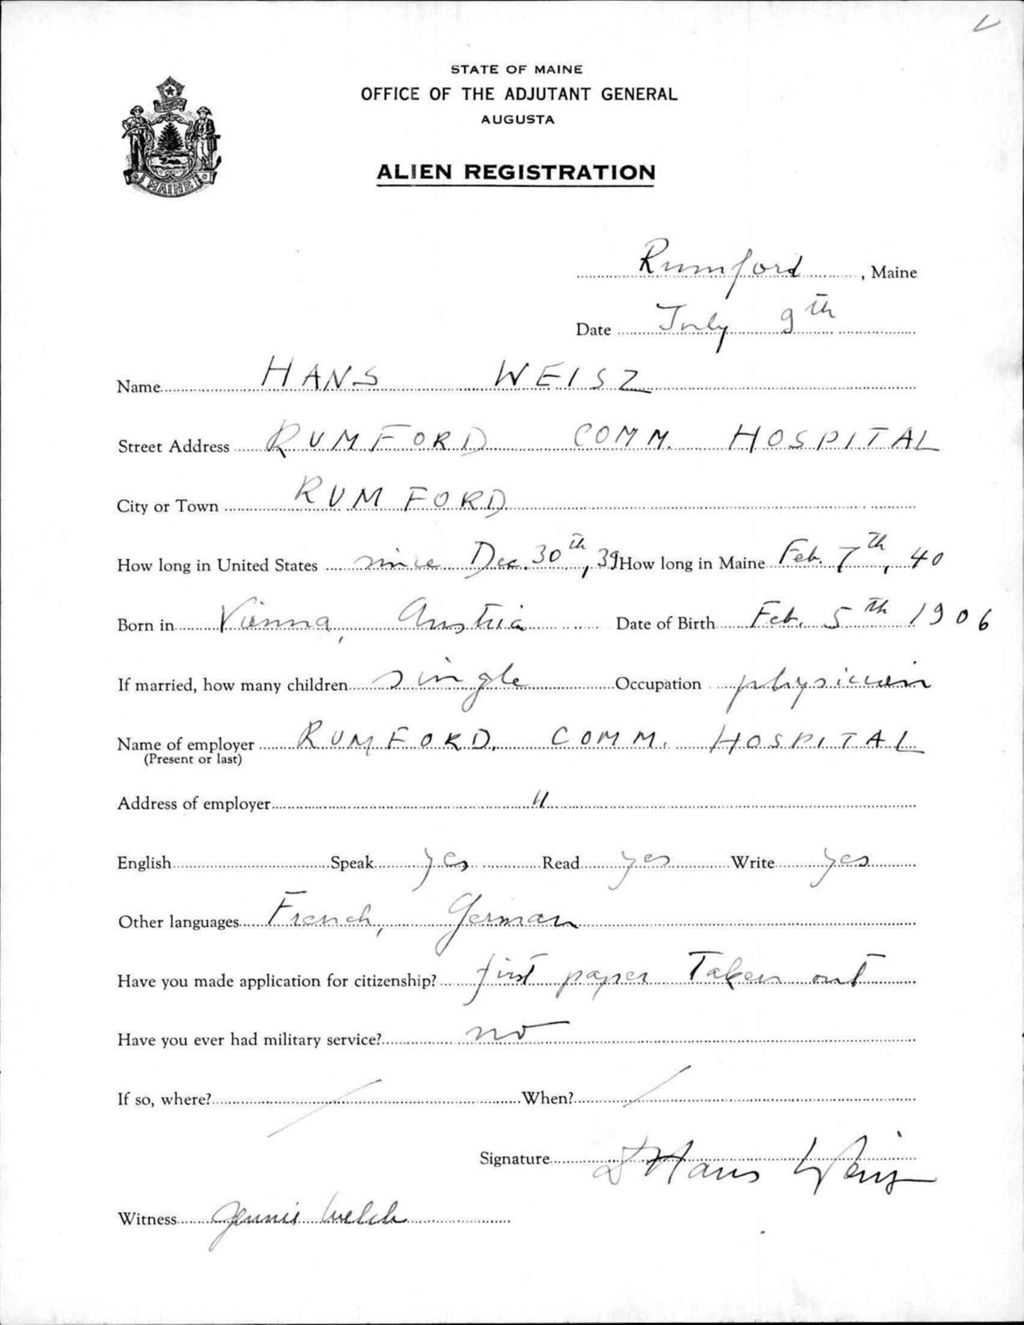 STATE OF MAINE
OFFICE OF THE ADJUTANT GENERAL
AUGUSTA
ALIEN REGISTRATION
MAINE
Rumford, Maine
Date July 9th
Name HANS WEISZ
Street Address RUMFORD COMM. HOSPITAL
City or Town RUMFORD
How long in United States since Dec. 30th, 39 How long in Maine Feb. 7th, 40
Born in Vienna, Austria Date of Birth Feb. 5th 1906
If married, how many children single Occupation physician
Name of employer RUMFORD. COMM. HOSPITAL
(Present or last)
Address of employer "
English Speak yes Read yes Write yes
Other languages French, German
Have you made application for citizenship? first paper Taken out
Have you ever had military service? no
If so, where? / When? /
Signature Hans Weisz
Witness Jennie Welch